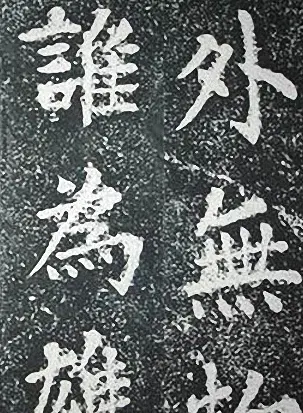 外無物
誰為雄